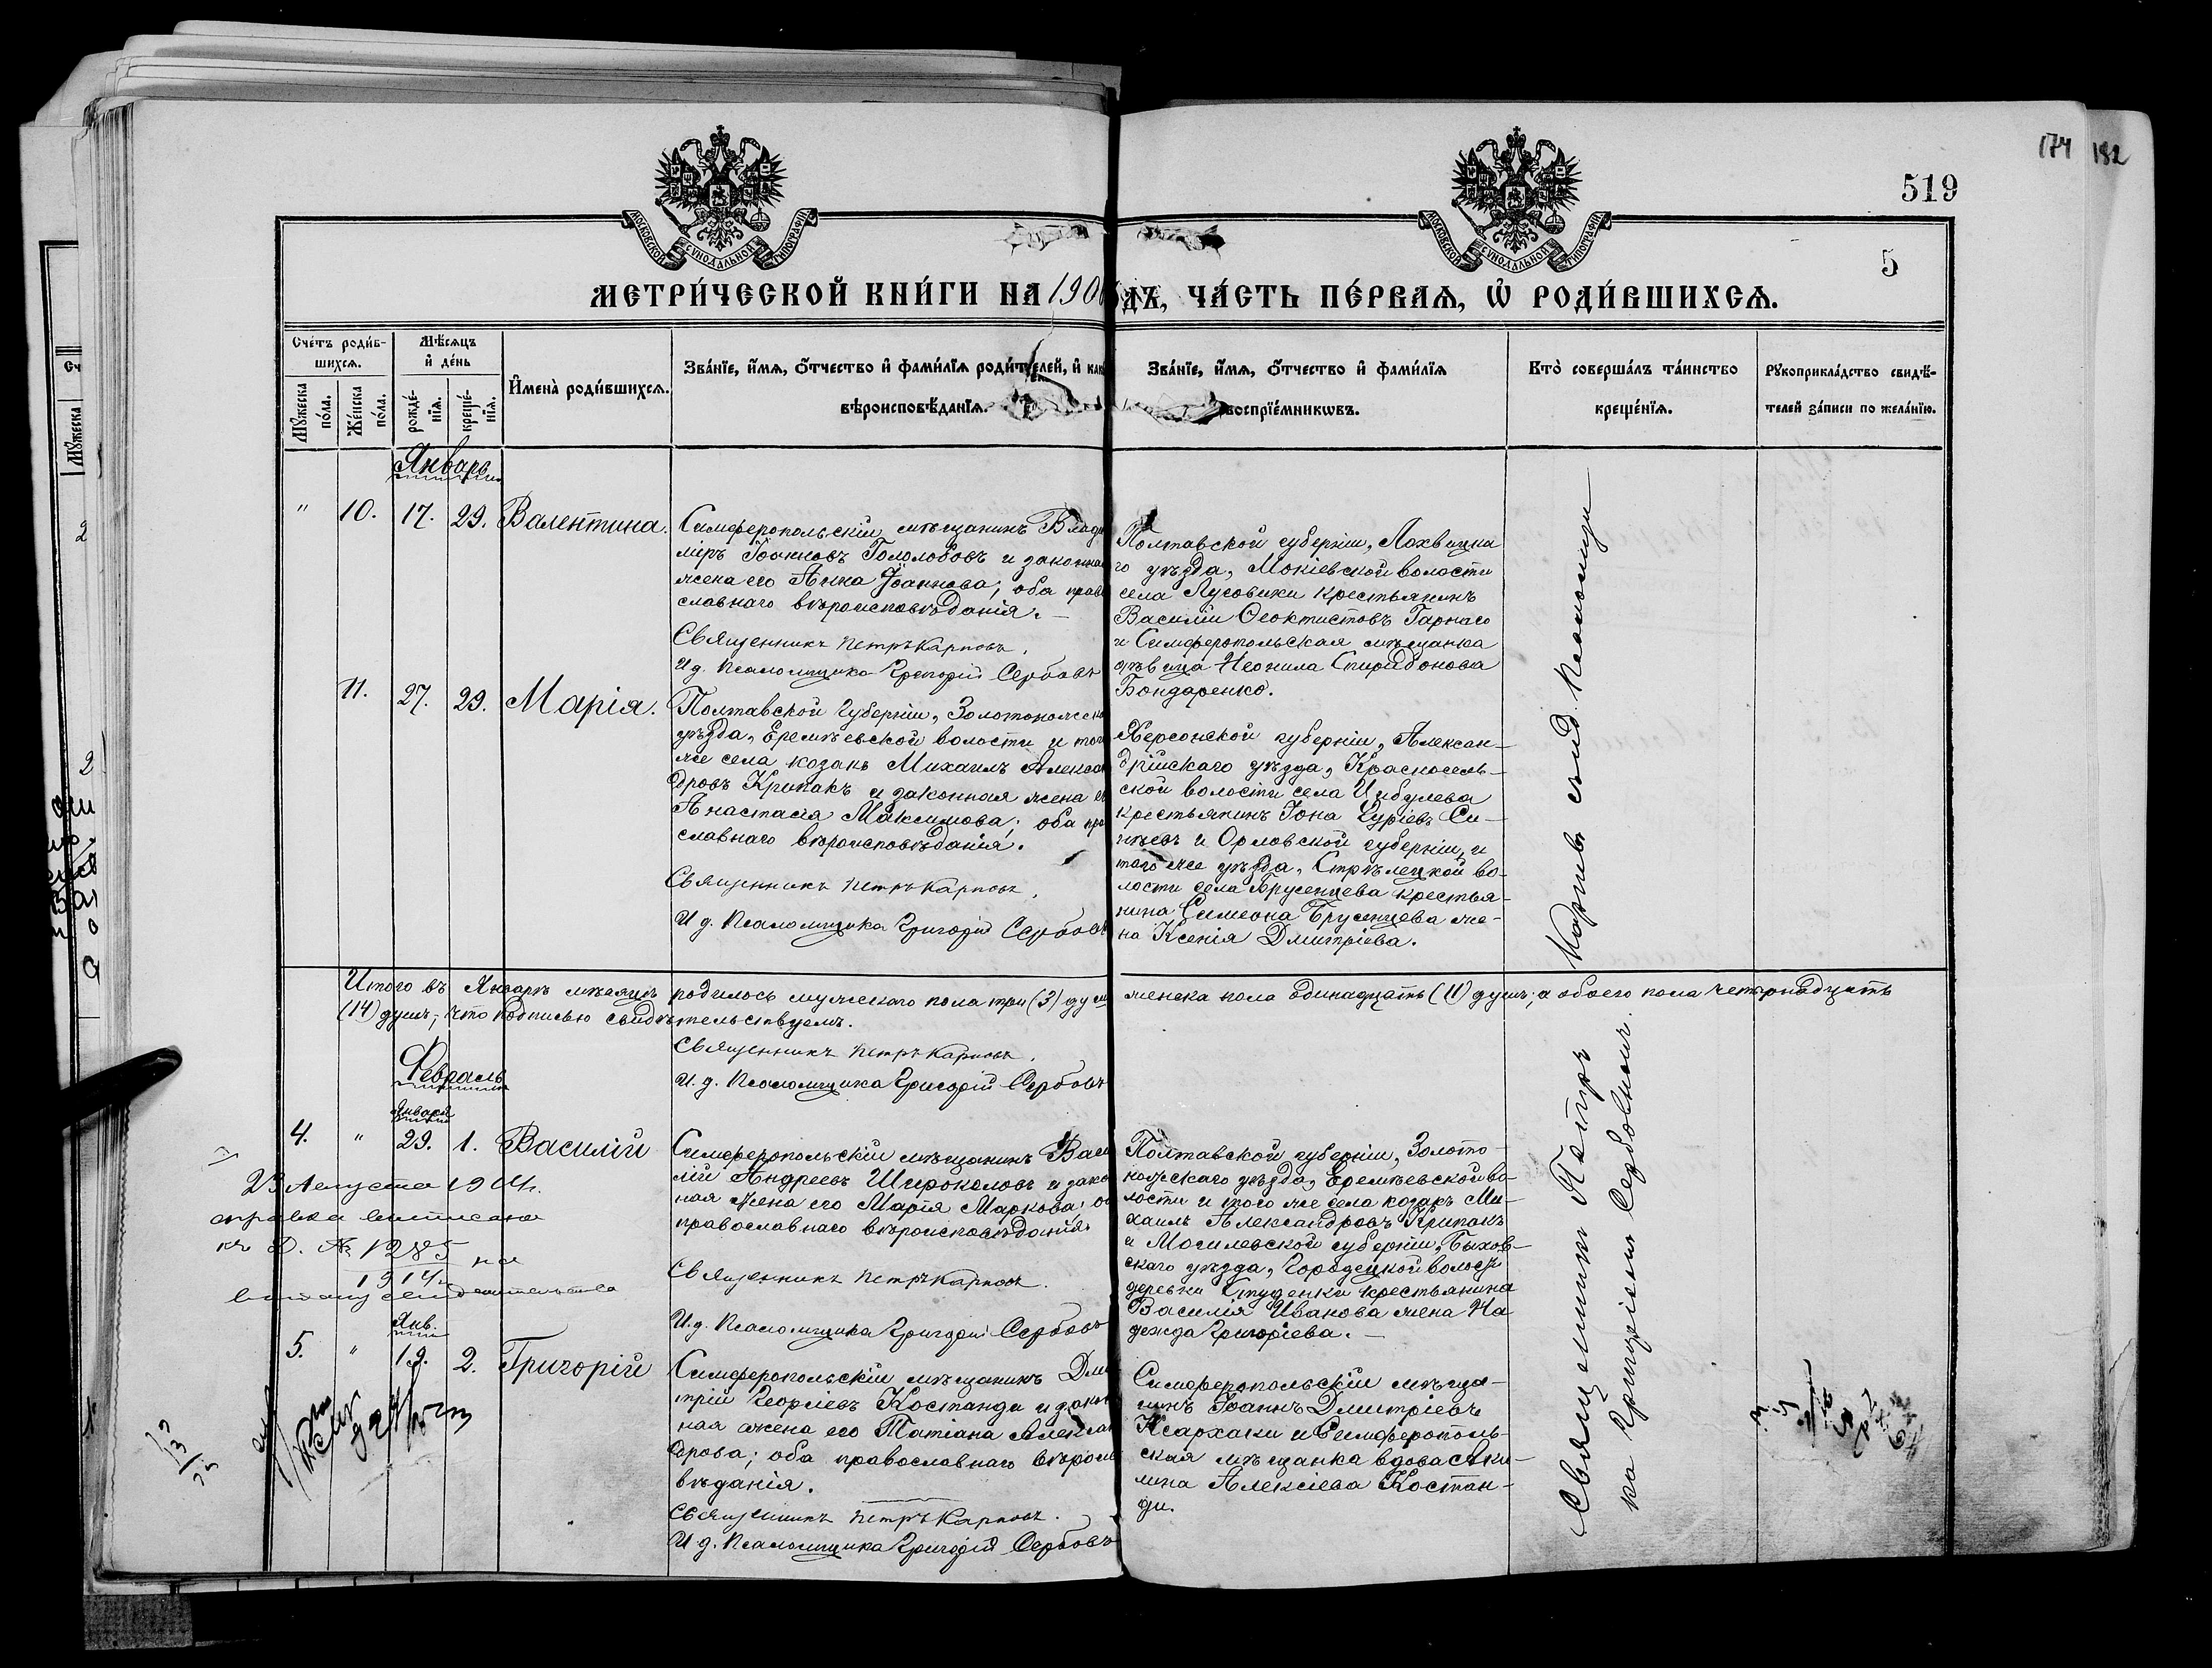 174 182
519
5
МОСКОВСКОЙ СѴНОДАЛЬНОЙ ТИПОГРАФІИ
МОСКОВСКОЙ СѴНОДАЛЬНОЙ ТИПОГРАФІИ
МЕТРИ́ЧЕСКОЙ КНИ́ГИ НА 190
ДЪ, ЧА́СТЬ ПЕ́РВАѦ, Ѡ҆ РОДИ́ВШИХСѦ.
Сче́тъ роди́в-
шихсѧ.
Мѹжеска
по́ла.
Же́нска
по́ла.
Мѣ́сѧцъ
и҆ де́нь
рожде́-
нїѧ.
креще́-
нїѧ.
И҆мена̀ роди́вшихсѧ.
Зва́нїе, и҆́мѧ, ѻ҆́тчество и҆ фами́лїѧ роди́телей, и҆ как
вѣроисповѣ́данїѧ.
Зва́нїе, и҆́мѧ, ѻ҆́тчество и҆ фами́лїѧ
воспрїе́мникѡвъ.
Кто̀ соверша́лъ та́инство
креще́нїѧ.
Рѹкоприкла́дство свидѣ́-
телей за́писи по жела́нїю.
Январь
" 10. 17. 29. Валентина.
Симферопольскій мѣщанинъ Влади
міръ Іоанновъ Гололобовъ и законна
жена его Анна Іоаннова; оба прав
славнаго вѣроисповѣданія. —
Священникъ Петръ Карповъ.
И д. Псаломщика Григорій Сербовъ
Полтавской губерніи, Лохвицка
го уѣзда, Мокіевской волости
села Лусовики крестьянинъ
Василій Ѳеоктистовъ Гарнаго
и Симферопольская мѣщанка
дѣвица Неонила Спиридонова
Бондаренко.
11. 27. 29. Марія.
Полтавской губерніи, Золотоношска
уѣзда, Еремѣевской волости и того
же села козакъ Михаилъ Алексан
дровъ Крипакъ и законная жена е
Анастасія Максимова; оба пра
славнаго вѣроисповѣданія.
Священникъ Петръ Карповъ.
И д. Псаломщика Григорій Сербовъ
Херсонской губерніи, Алексан-
дрійскаго уѣзда, Красносель-
ской волости села Цибулева
крестьянинъ Іона Гуріевъ Си-
нѣевъ и Орловской губерніи, и
того же уѣзда, Стрѣлецкой во-
лости села Брусенцева крестья-
нина Симеона Брусенцева же-
на Ксенія Дмитріева.
Итого въ Январѣ мѣсяцѣ родилось мужескаго пола три (3) душ женска пола одинадцать (11) душъ; а обоего пола четырнадцать
(14) душъ; что подписью свидѣтельствуемъ.
Священникъ Петръ Карповъ.
И. д. Псаломщика Григорій Сербовъ
Февраль
Января
4. " 29. 1. Василій
Симферопольскій мѣщанинъ Васи
лій Андреевъ Широколовъ и зако
ная жена его Марія Маркова; о
православнаго вѣроисповѣданія.
Священникъ Петръ Карповъ.
И. д. Псаломщика Григорій Сербовъ
Полтавской губерніи, Золото-
ношскаго уѣзда, Еремѣевской во-
лости и того же села козакъ Ми-
хаилъ Александровъ Крипакъ
и Могилевской губерніи, Быхов-
скаго уѣзда, Городецкой волости
деревни Студенки крестьянина
Василія Иванова жена На
дежда Григоріева. —
23 Августа 1914 г.
справка выписана
къ Д. № 1285
1914 на
Янв.
5. " 19. 2. Григорій
Симферопольскій мѣщанинъ Дми
трій Георгіевъ Костанди и закон
ная жена его Татіана Алексан
дрова; оба православнаго вѣроис
вѣданія.
Священникъ Петръ Карповъ.
И д. Псаломщика Григорій Сербовъ
Симферопольскій мѣща-
нинъ Іоаннъ Дмитріевъ
Ксархаки и Симферополь-
ская мѣщанка вдова Аки-
лина Алексіева Костан-
ди.
Священникъ Петръ Карповъ съ и д. Псаломщи-
ка Григоріемъ Сербовымъ.